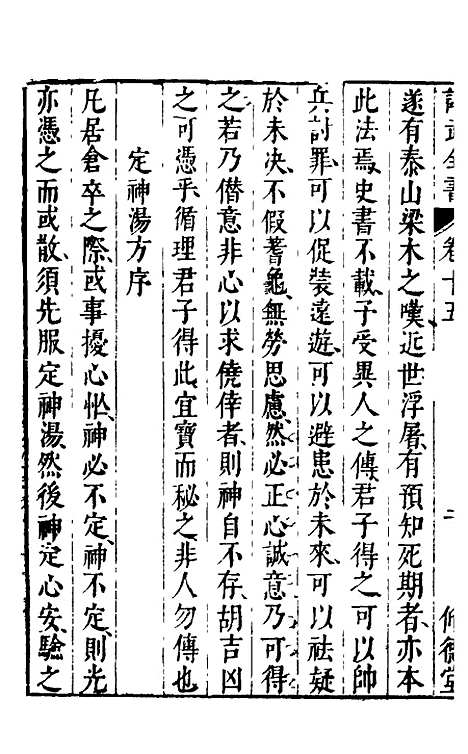 卷十五
遂有泰山梁木之嘆近世浮屠有預知死期者亦本
此法焉史書不載子受異人之傳君子得之可以帥
兵討罪可以促裝遠遊可以避患於未來可以祛疑
於未决不假蓍龜無勞思慮然必正心誠意乃可得
之若乃僭意非心以求僥倖者則神自不存胡吉凶
之可憑乎循理君子得此宜寶而秘之非人勿傳也
定神湯方序
凡居倉卒之際或事擾心怔神必不定神不定則光
亦憑之而或散須先服定神湯然後神定心安驗之